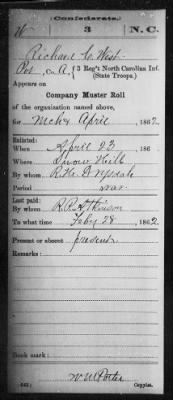 Confederate.
W 3 N.C.
Richard C. West
Pvt, Co. A, { 3 Reg't North Carolina Inf. (State Troops.)
Appears on
Company Muster Roll
of the organization named above,
for Mch & April 1862
Enlisted:
When April 23 186
Where Snow Hill
By whom R.H. Drysdale
Period war
Last paid:
By whom R.R. Atkinson
To what time Feby 28 1862
Present or absent present
Remarks:
Book mark:
(642)
Copyist.